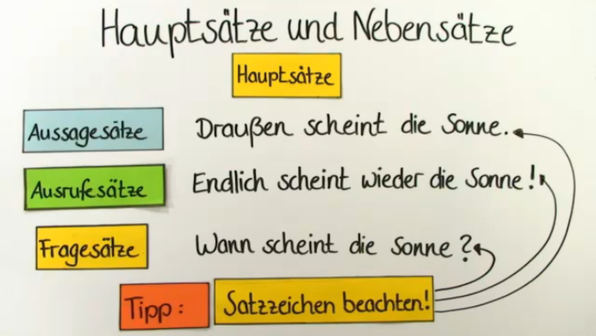 Hauptsätze und Nebensätze
Hauptsätze
Aussagesätze Draußen scheint die Sonne.
Ausrufesätze Endlich scheint wieder die Sonne!
Fragesätze Wann scheint die Sonne?
Tipp: Satzzeichen beachten!